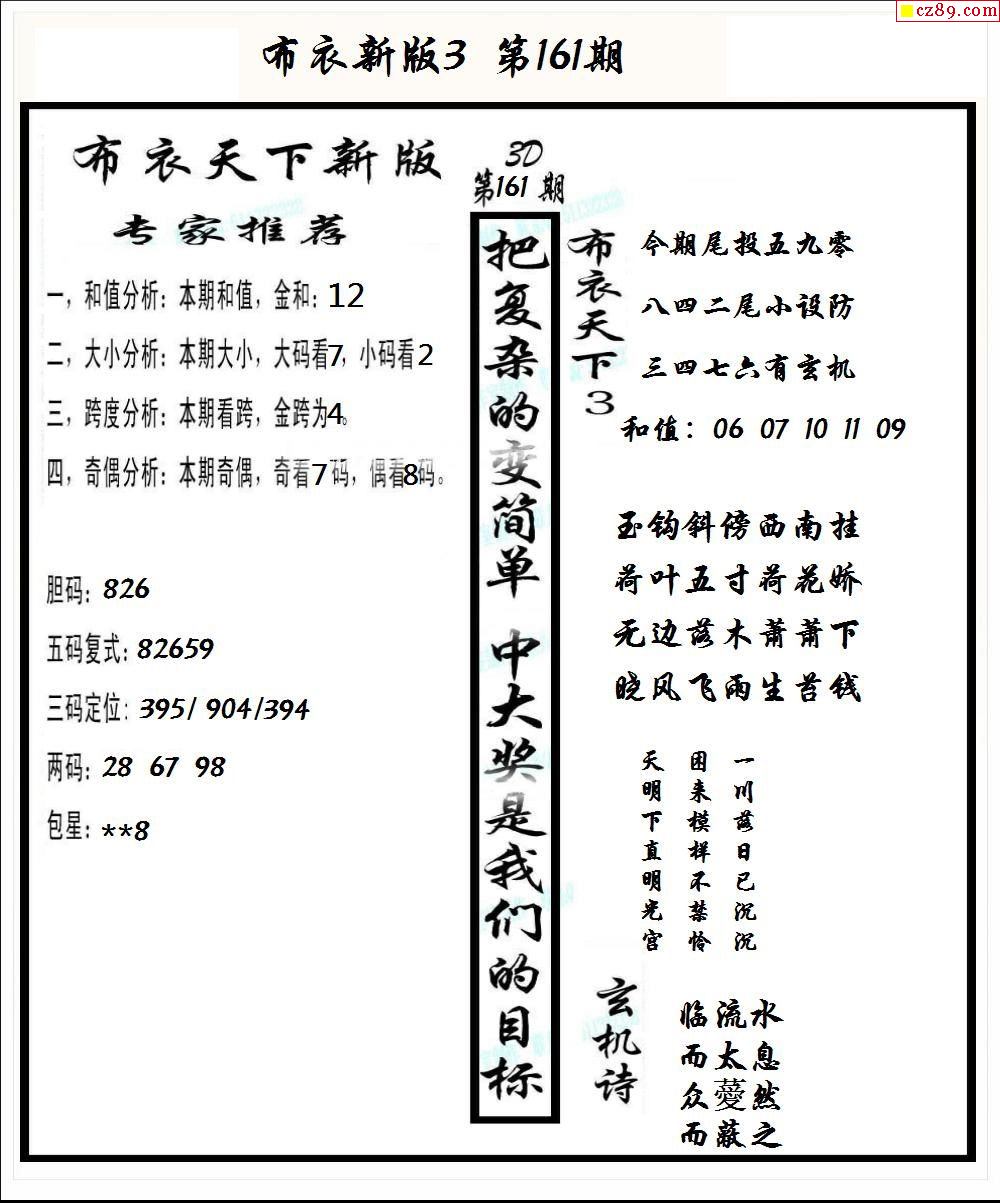 cz89.com
布衣新版3 第161期
布衣天下新版
专家推荐
一，和值分析：本期和值，金和：12
二，大小分析：本期大小，大码看7，小码看2
三，跨度分析：本期看跨，金跨为4。
四，奇偶分析：本期奇偶，奇看7码，偶看8码。
胆码：826
五码复式：82659
三码定位：395/ 904/394
两码：28 67 98
包星：**8
3D
第161 期
把复杂的变简单 中大奖是我们的目标
布衣天下3
今期尾投五九零
八四二尾小设防
三四七六有玄机
和值：06 07 10 11 09
玉钩斜傍西南挂
荷叶五寸荷花娇
无边落木萧萧下
晓风飞雨生苔钱
一川落日已沉沉
困来模样不禁怜
天明下直明光宫
玄机诗
临流水
而太息
众薆然
而蔽之